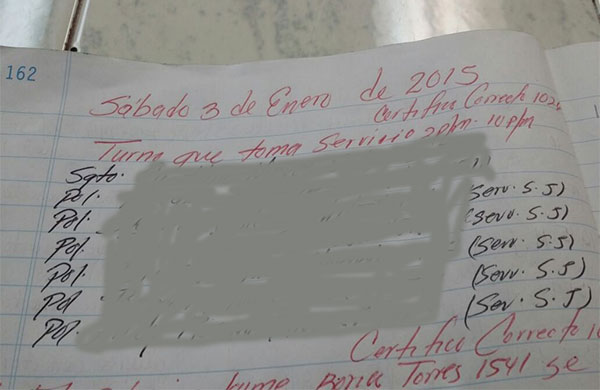 162
Sábado 3 de Enero de 2015
Certifico Correcto 102
Turno que toma Servicio 2pm. 10pm
Sgto.
Pol. (Serv. S.J)
Pol. (Serv. S.J)
Pol. (Serv. S.J)
Pol. (Serv. S.J)
Pol (Serv. S.J)
Pol.
Certifico Correcto 10
Torres 1541 se